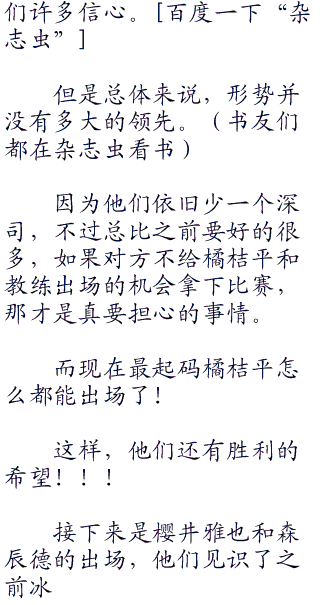 们许多信心。[百度一下“杂
志虫”]
但是总体来说，形势并
没有多大的领先。（书友们
都在杂志虫看书）
因为他们依旧少一个深
司，不过总比之前要好的很
多，如果对方不给橘桔平和
教练出场的机会拿下比赛，
那才是真要担心的事情。
而现在最起码橘桔平怎
么都能出场了！
这样，他们还有胜利的
希望！！！
接下来是樱井雅也和森
辰德的出场，他们见识了之
前冰